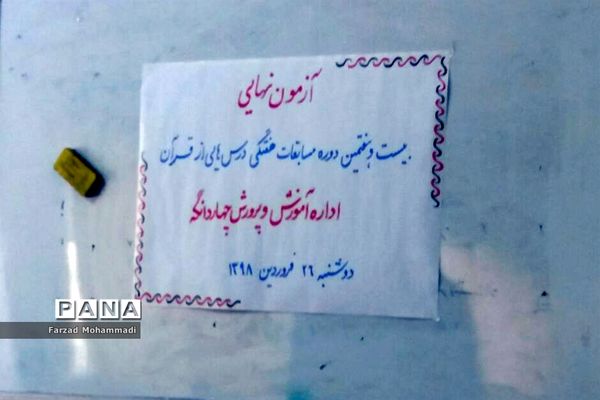 آزمون نهایی
بیست و هفتمین دوره مسابقات هفتگی درس هایی از قرآن
اداره آموزش و پرورش چهاردانگه
دوشنبه ۲۶ فروردین ۱۳۹۸
PANA
Farzad Mohammadi